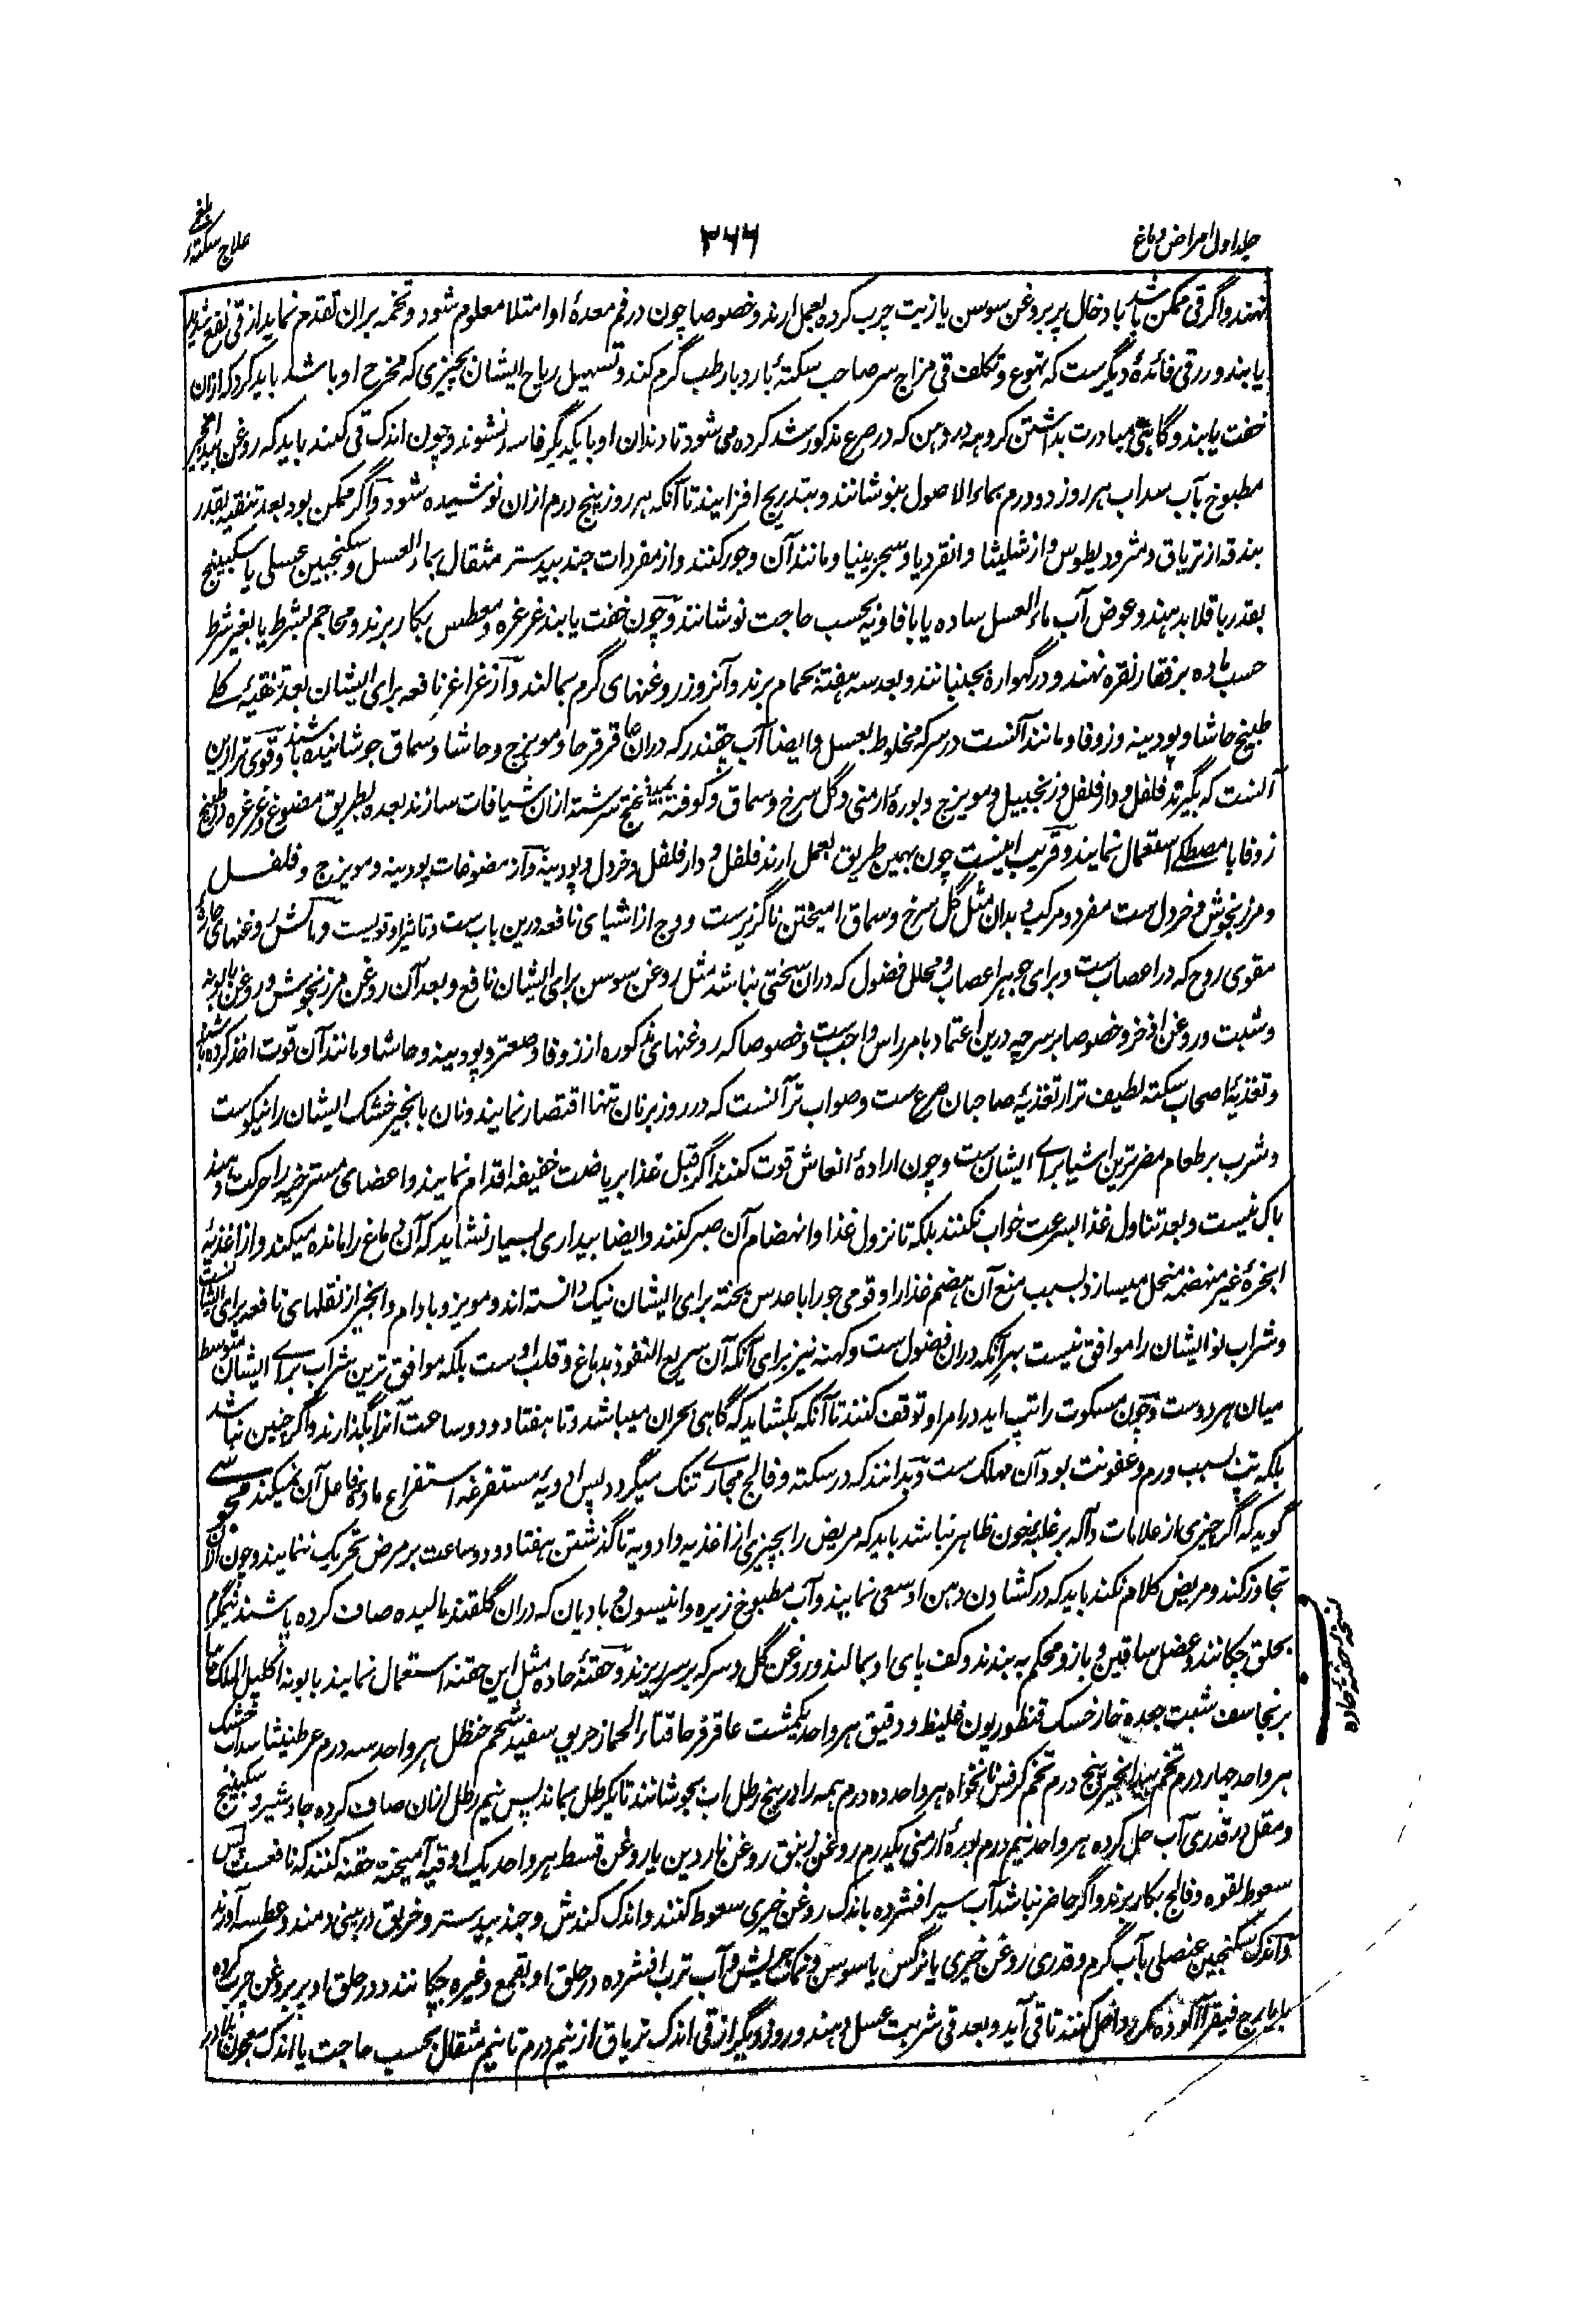 جلد اول امراض دماغ
۳۶۶
علاج سکتهٔ بلغمی
نهند و اگر قی ممکن باشد بادخال پر بروغن سوسن یا زیت چرب کرده بعمل ارند و خصوصا چون در فم معدهٔ او امتلا معلوم شود و تخمه بران تقدم نماید از قی نفع شدید
یابند و در قی فائدهٔ دیگرست که تهوع و تکلف قی مزاج سر صاحب سکتهٔ بارد بارطب گرم کند و تسهیل ریاح ایشان بچیزی که مخرج او باشد باید کرد که ازان
خفت یابند و گاهی مبادرت بداشتن کروهه در دهن که در صرع مذکور شد کرده می شود تا دندان او بایکدیگر فاسد نشوند و چون اندک قی کنند باید که روغن بیدانجیر
مطبوخ بآب سداب هر روز دو درم بماء الاصول بنوشانند و بتدریج افزایند تا آنکه هر روز پنج درم ازان نوشیده شود و اگر ممکن بود بعد تنقیه بقدر
بندقه از تریاق و مثرودیطوس و از شلیثا و انقردیا و سجزینیا و مانند آن وجور کنند و از مفردات جندبیدستر مثقال بماء العسل و سکنجبین عسلی یا سکبینج
بقدر باقلا بدهند و عوض آب ماء العسل ساده یا بافاویه بحسب حاجت نوشانند و چون خفت یابند غرغره و معطس بکار برند و محاجم بشرط یا بغیر شرط
حسب ماده بر فقار نقره نهند و در گهواره بجنبانند و بعد سه هفته بحمام برند و آنروز روغنهای گرم بمالند و از غراغر نافعه برای ایشان بعد تنقیهٔ کلے
طبیخ حاشا و پودینه و زوفا و مانند آنست در سرکه مخلوط بعسل و ایضا آب چقندر که دران عاقرقرحا و مویزج و حاشا و سماق جوشانیده باشند و قوی تر ازین
آنست که بگیرند فلفل و دارفلفل و زنجبیل و مویزج و بورهٔ ارمنی و گل سرخ و سماق و کوفته بمیبختج سرشته ازان شیافات سازند بعده بطریق مضوغ و غرغره و طبیخ
زوفا یا مصطکی استعمال نمایند و قریب اینست چون بهمین طریق بعمل ارند فلفل و دارفلفل و خردل و پودینه و از مضوغات پودینه و مویزج و فلفل
و مرزنجوش و خردل ست مفرد و مرکب و بدان مثل گل سرخ و سماق امیختن ناگزیرست و وج از اشیای نافعه درین باب ست و تاثیر او قویست و مالش روغنهای حاره
مقوی روح که در اعصاب ست و برای جوهر اعصاب و محلل فضول که دران سختی نباشد مثل روغن سوسن برای ایشان نافع و بعد آن روغن مرزنجوش و روغن بابونه
و شبت و روغن اذخر و خصوصا بر سر چه درین اعتماد بامر راس واجب ست و خصوصا که روغنهای مذکوره از زوفا و صعتر و پودینه و حاشا و مانند آن قوت اخذ کرده باشند
و تغذیهٔ اصحاب سکته لطیف تر از تغذیهٔ صاحبان صرع ست و صواب تر آنست که در روز بر نان تنها اقتصار نمایند و نان با انجیر خشک ایشان را نیکوست
و شرب بر طعام مضرترین اشیا برای ایشان ست و چون ارادهٔ انعاش قوت کنند اگر قبل غذا بریاضت خفیفه اقدام نمایند و اعضای مسترخیه را حرکت دهند
باک نیست و بعد تناول غذا بسرعت خواب نکنند بلکه تا نزول غذا و انهضام آن صبر کنند و ایضا بیداری بسیار نشاید که آن دماغ را مانده میکند و از اغذیه
ابخرهٔ غیر منهضمه منحل میسازد بسبب منع آن هضم غذا را و قومی جو را با عدس پخته برای ایشان نیک دانسته اند و مویز و بادام و انجیر از نقلهای نافعه برای ایشانست
و شراب نو ایشان را موافق نیست بهر آنکه دران فضول ست و کهنه نیز برای آنکه آن سریع النفوذ بدماغ و قلب اوست بلکه موافق ترین شراب برای ایشان متوسط
میان هر دوست و چون مسکوت را تپ اید در امر او توقف کنند تا آنکه بکشاید که گاهی بحران میباشد و تا هفتاد و دو ساعت آنرا بگذارند و اگر چنین نباشد
بلکه تپ بسبب ورم و عفونت بود آن مهلک ست و بدانند که در سکته و فالج مجاری تنگ میگردد پس ادویهٔ مستفرغه استفراغ مادهٔ فاعل آن نمیکند مجوسی
گوید که اگر چیزی از علامات داله بر غلبهٔ خون ظاهر نباشد باید که مریض را بچیزی از اغذیه و ادویه تا گذشتن هفتاد و دو ساعت بر مرض تحریک ننمایند و چون ازان
تجاوز کند و مریض کلام نکند باید که در کشادن دهن او سعی نمایند و آب مطبوخ زیره و انیسون و بادیان که دران گلقند مالیده صاف کرده باشند نیمگرم
بحلق چکانند و عضل ساقین و بازو محکم به بندند و کف پای او بمالند و روغن گل و سرکه بر سر ریزند و حقنهٔ حاده مثل این حقنه استعمال نمایند بابونه اکلیل الملک
برنجاسف شبت جعده خارخسک قنطوریون غلیظ و دقیق هر واحد یکمشت عاقرقرحا قثاء الحمار حربی سفید شحم حنظل هر واحد سه درم عرطنیثا سداب خشک
هر واحد چهار درم تخم بیدانجیر پنج درم تخم کرفس نانخواه هر واحد ده درم همه را در پنج رطل اب بجوشانند تا یکرطل بماند پس نیم رطل ازان صاف کرده جاوشیر و سکبینج
و مقل در قدری آب حل کرده هر واحد نیم درم بورهٔ ارمنی یکدرم روغن زنبق روغن ناردین یا روغن قسط هر واحد یک اوقیه آمیخته حقنه کنند که نافعست پس
سعوط لقوه و فالج بکار برند و اگر حاضر نباشد آب سیر افشرده باندک روغن خیری سعوط کنند و اندک کندش و جندبیدستر و خربق در بینی دمند و عطسه آورند
و اندک سکنجبین عنصلی بآب گرم و قدری روغن خیری یا نرگس یا سوسن و نمک جریش و آب ترب افشرده در حلق او بقمع وغیره چکانند و در حلق او پر بروغن چرب کرده
بایارج فیقرا آلوده کرده داخل کنند تا قی آید و بعد قی شربت عسل دهند و روز دیگر از قی اندک تریاق از نیم درم تا نیم مثقال بحسب حاجت یا اندک معجون بلادر
نسخه حقنهٔ حاده